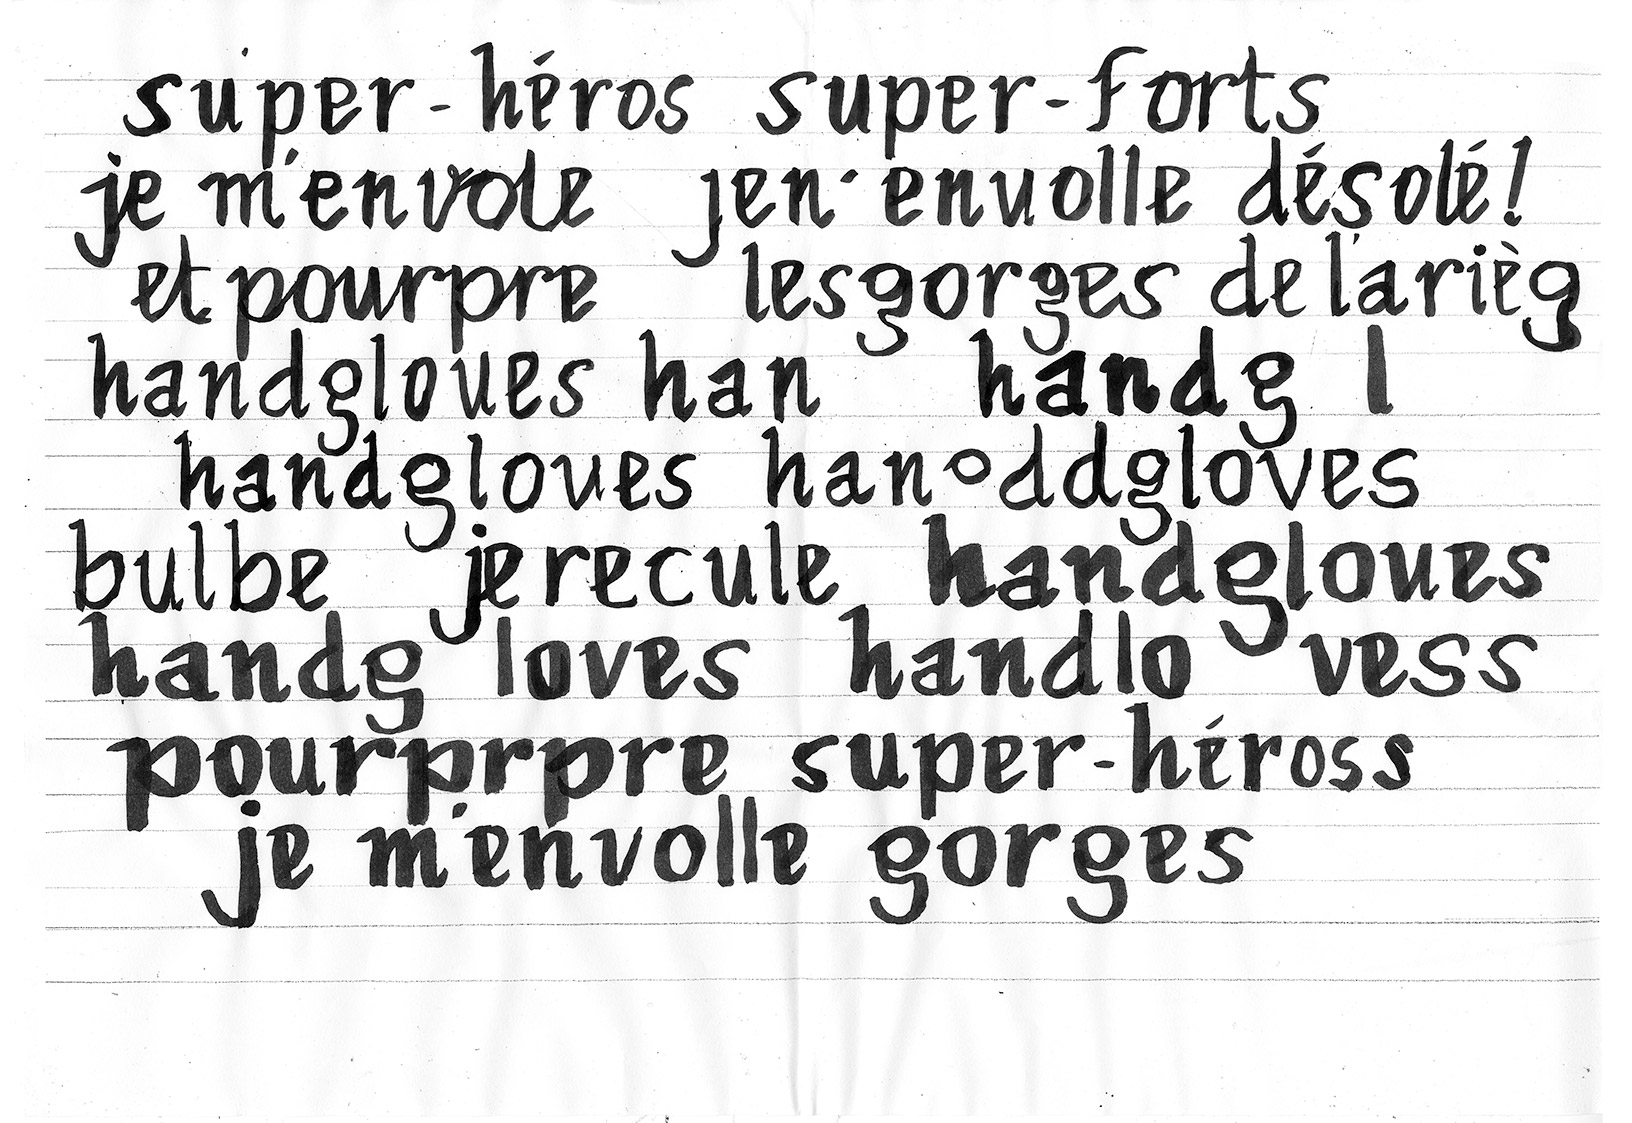 super-héros super-forts
je m'envole jen'envolle désolé!
et pourpre les gorges de l'arièg
handgloves han handg l
handgloves hanoddgloves
bulbe je recule handgloves
handg loves handlo vess
pourprpre super-héross
je m'envolle gorges